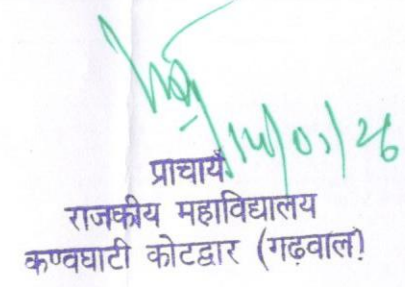 प्राचार्य
राजकीय महाविद्यालय
कण्वघाटी कोटद्वार (गढ़वाल)